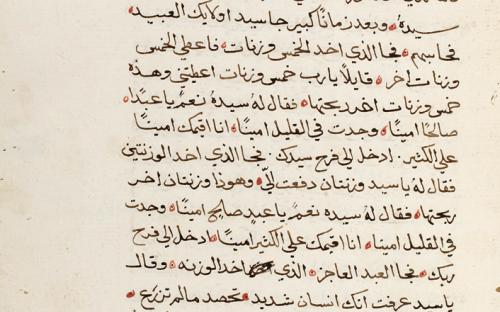 سيدهُ ۰ وبعد زمانًا كبير جا سيد اولايك العبيد
فحاسبهم ۰ فجا الذي اخد الخمس وزنات ۰ فاعطي الخمس
وزنات اخر ۰ قايلًا يارب خمس وزنات اعطيتني وهذه
خمس وزنات اخر ربحتها ۰ فقال لهُ سيدهُ نعمٌ يا عبدًا
صالحًا امينًا ۰ وجدت في القليل امينًا ۰ انا اقيمك امينًا
علي الكثير ۰ ادخل الي فرح سيدك ۰ فجا الذي اخد الوزنتين
فقال لهُ يا سيد وزنتان دفعت لي ۰ وهوذا وزنتان اخر
ربحتها ۰ فقال لهُ سيده نعمٌ يا عبدٍ صالحٍ امينًا ۰ وجدت
في القليل امينا ۰ انا اقيمك علي الكثير امينًا ۰ ادخل الي فرح
ربك ۰ فجا العبد العاجز ۰ الذي اخد الوزنه ۰ وقال
يا سيد عرفت انك انسان شديد ۰ تحصد مالم تزرع ۰